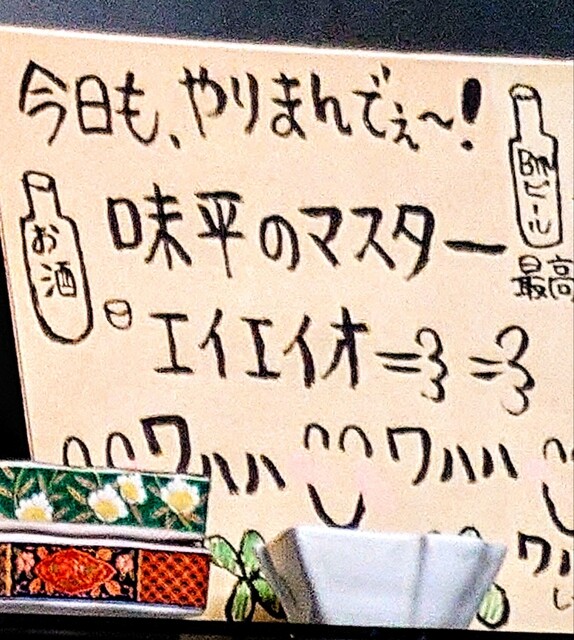 今日も、やりまんでぇ〜!
お酒
味平のマスター
ビール
最高
エイエイオー
ワハハ ワハハ